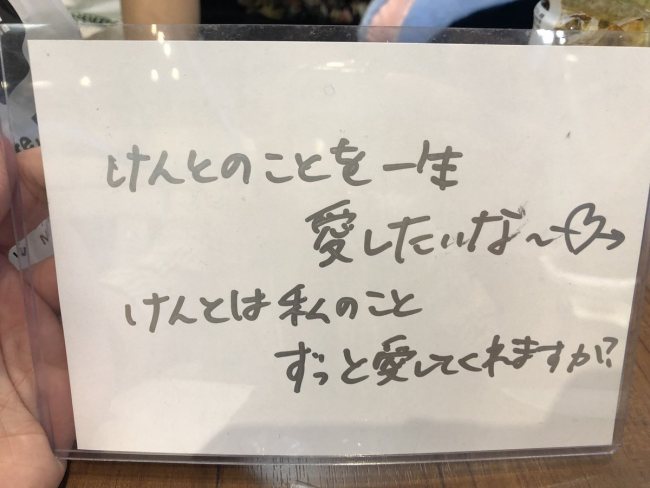 けんとのことを一生
愛したいな~♡
けんとは私のこと
ずっと愛してくれますか?